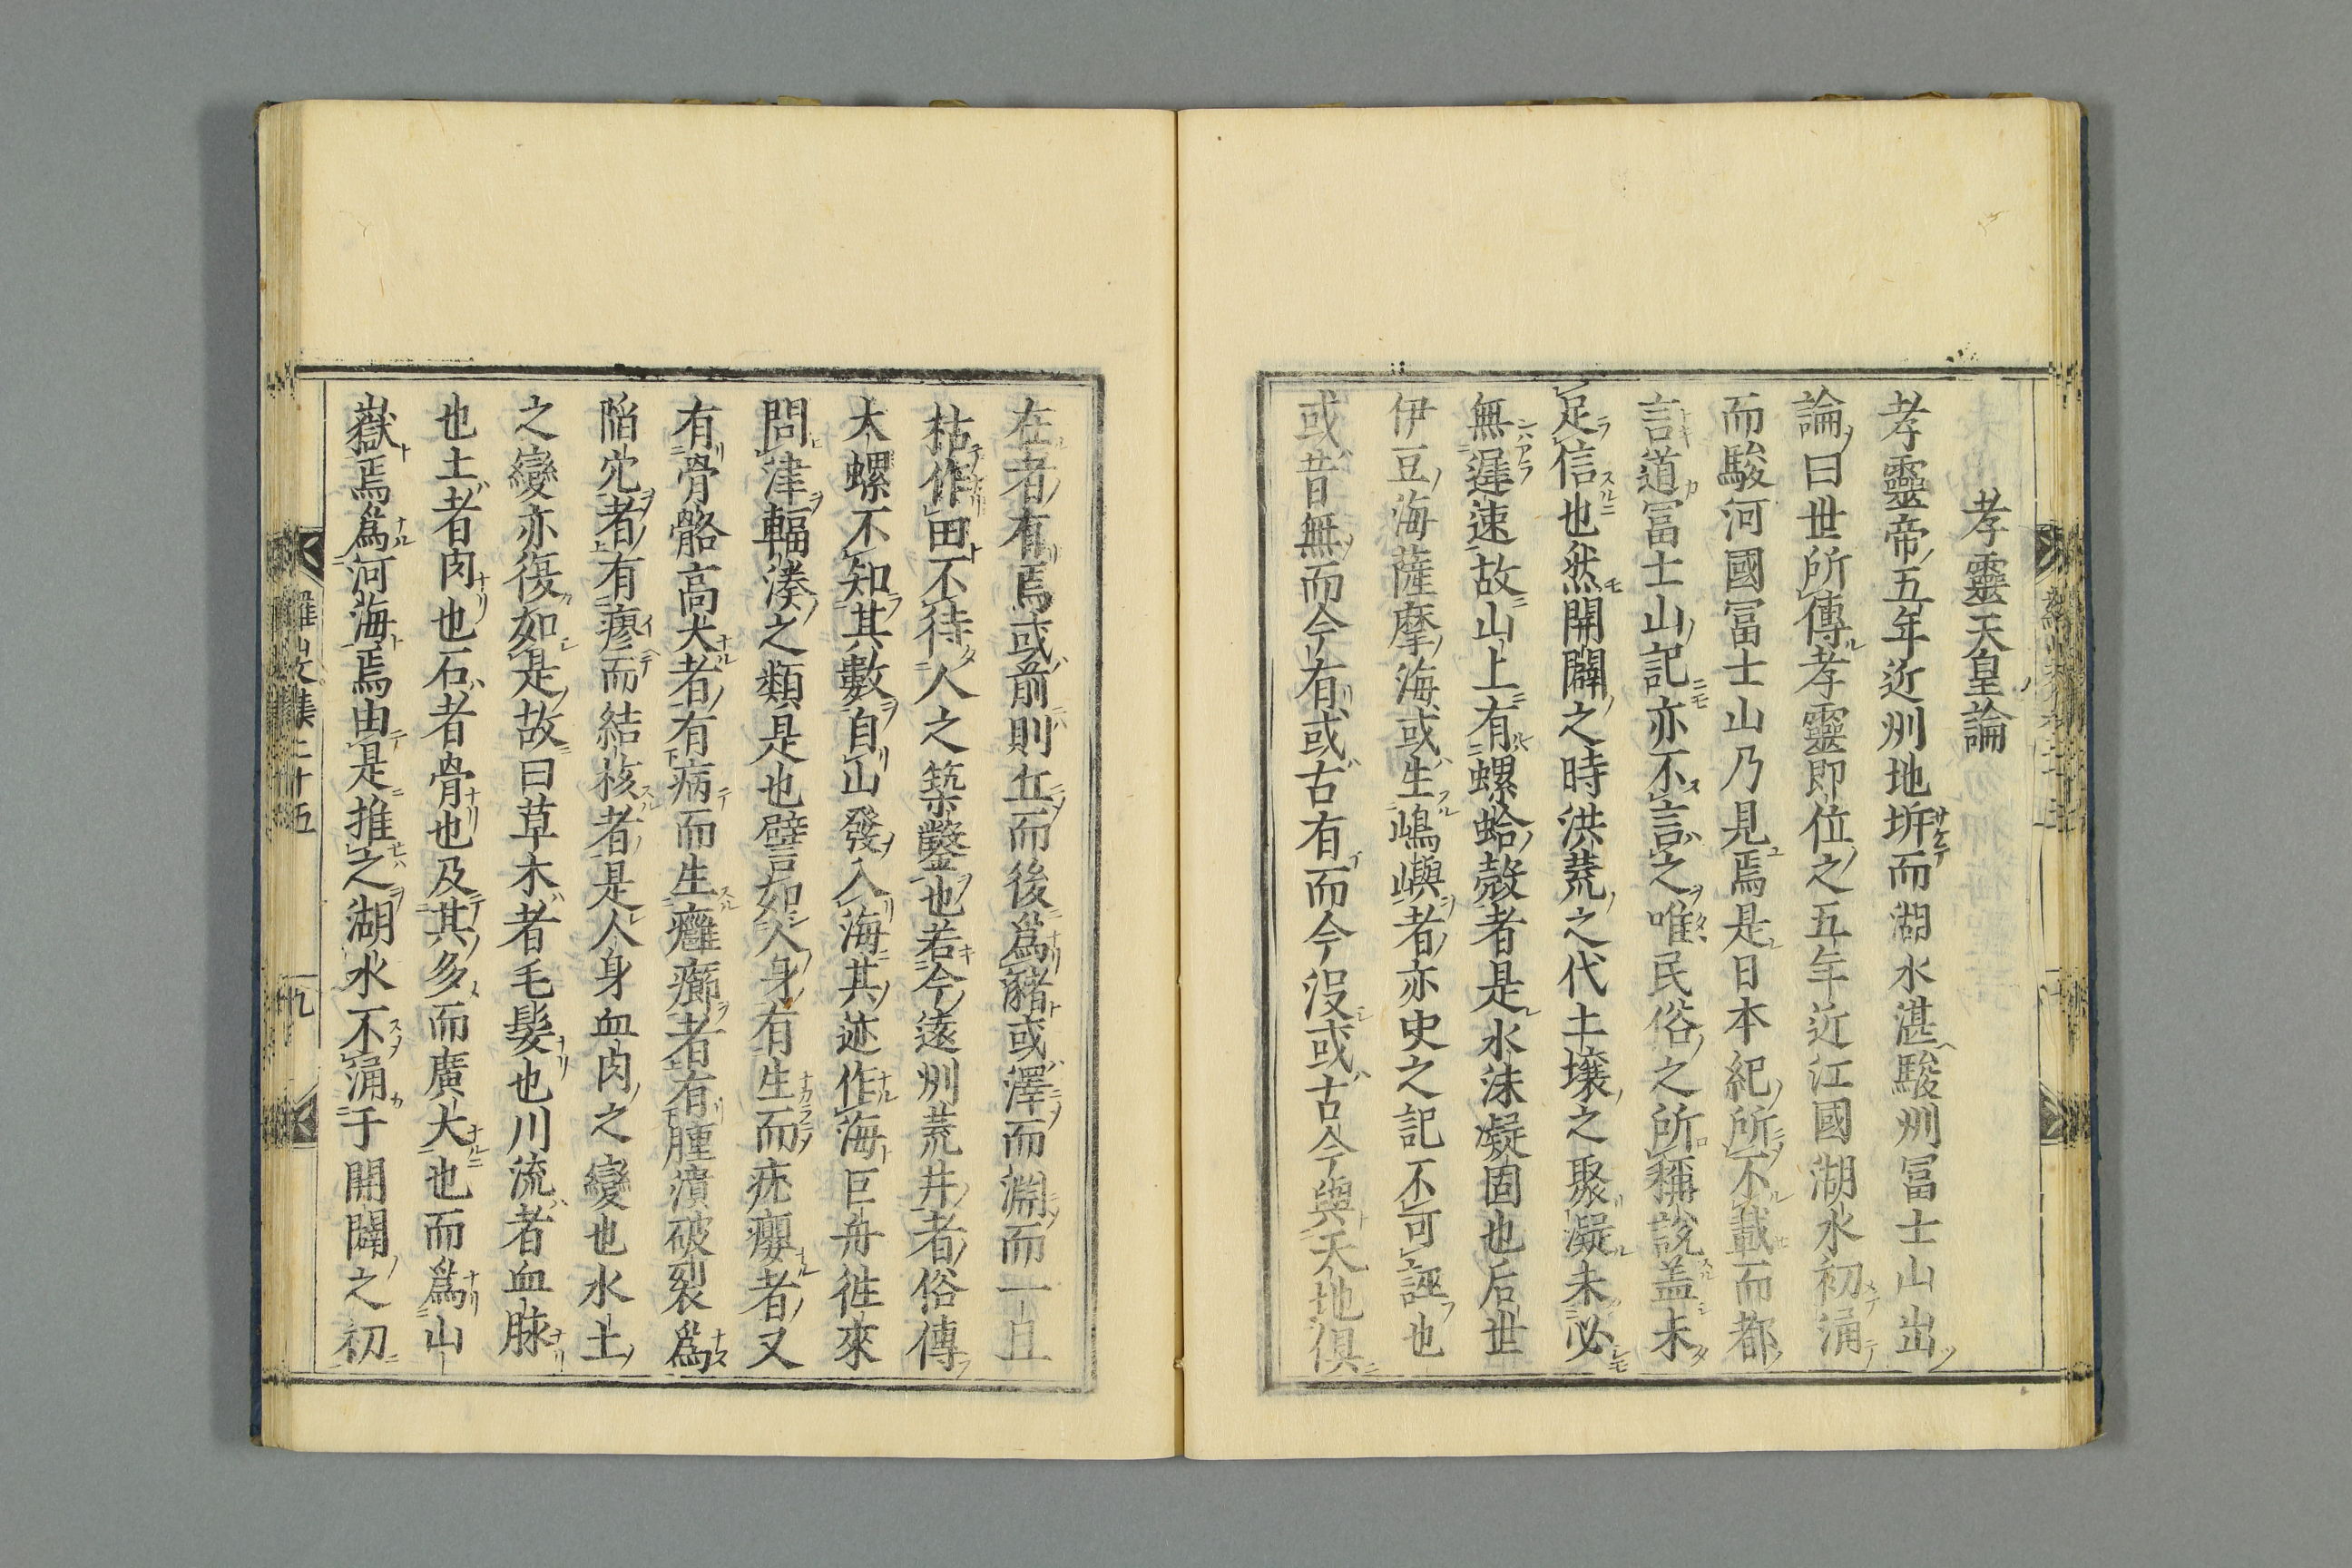 孝靈天皇論
孝靈帝五年近州地坼而湖水湛駿州冨士山出
論曰世所傳孝靈即位之五年近江國湖水初涌
而駿河國冨士山乃見焉是日本紀所不載而都
言道冨士山記亦不言之唯民俗之所稱說盖未
足信也然開闢之時洪荒之代土壤之聚凝未必
無遲速故山上有螺蛤殼者是水沫凝固也后世
伊豆海薩摩海或生嶋嶼者亦史之記不可誣也
或昔無而今有或古有而今沒或古今與天地俱
在者有焉或前則丘而後爲瀦或澤而淵而一旦
枯作田不待人之築鑿也若今遠州荒井者俗傳
大螺不知其數自山發入海其迹作海巨舟徃來
問津輻湊之類是也譬如人身有生而疣癭者又
有骨骼高大者有病而生癰癤者有腫潰破裂爲
陷穴者有瘳而結核者是人身血肉之變也水土
之變亦復如是故曰草木者毛髮也川流者血脉
也土者肉也石者骨也及其多而廣大也而爲山
嶽焉爲河海焉由是推之湖水不涌于開闢之初
羅山文集二十五
九